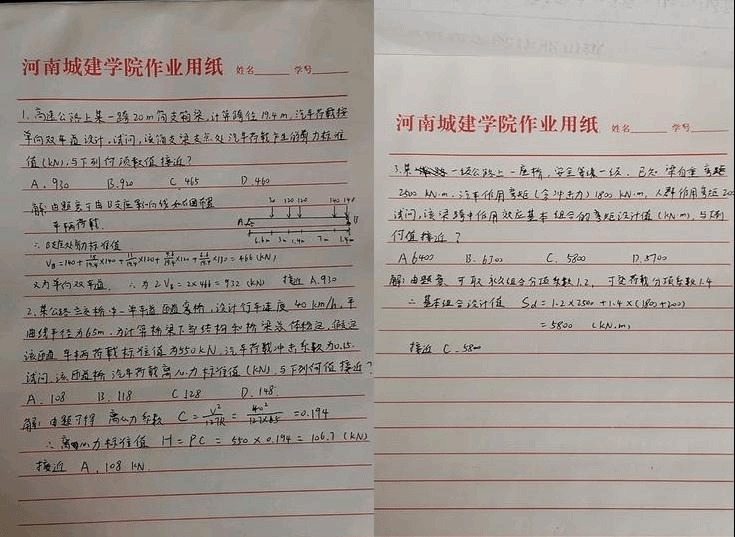 河南城建学院作业用纸 姓名 学号
1. 高速公路上某一跨20m简支箱梁,计算跨径19.4m,汽车荷载按
单向双车道设计.试问,该简支梁支点处汽车荷载产生的剪力标准
值(kN),与下列何项数值接近?
A. 930 B. 920 C. 465 D. 460
解: 由题意可由B支座影响线和右图布置
车辆荷载.
30 120 120 140 140
A B
6.6m 3m 1.4m 7m 1.4m
∴ B支反剪力标准值
又为单向双车道. ∴ 为2V_B = 2×466 = 932 (kN) 接近 A. 930
2. 某公路立交桥中一单车道匝道弯桥,设计行车速度 40 km/h,平
曲线半径为65m.为计算桥梁下部结构和桥梁总体稳定,假定
该匝道车辆荷载标准值为550kN,汽车荷载冲击系数为0.15.
试问,该匝道桥汽车荷载离心力标准值(kN),与下列何值接近?
A. 108 B. 118 C 128 D. 148
解: 由题可得 离心力系数 C = V²/127R = 40²/127×65 = 0.194
∴ 离心力标准值 H = PC = 550 × 0.194 = 106.7 (kN)
接近 A. 108 kN.
河南城建学院作业用纸 姓名 学号
3. 某一级公路上一座桥,安全等级一级.已知 梁自重弯矩
2500 kN·m,汽车作用弯矩(含冲击力)1800 kN·m,人群作用弯矩200
试问,该梁跨中作用效应基本组合的弯矩设计值(kN·m),与下列
何值接近?
A 6400 B. 6300 C. 5800 D. 5700
解: 由题意,可取永久组合分项系数1.2,可变荷载分项系数1.4
∴ 基本组合设计值 Sd = 1.2×2500 + 1.4×(1800+200)
= 5800 (kN.m)
接近 C. 5800